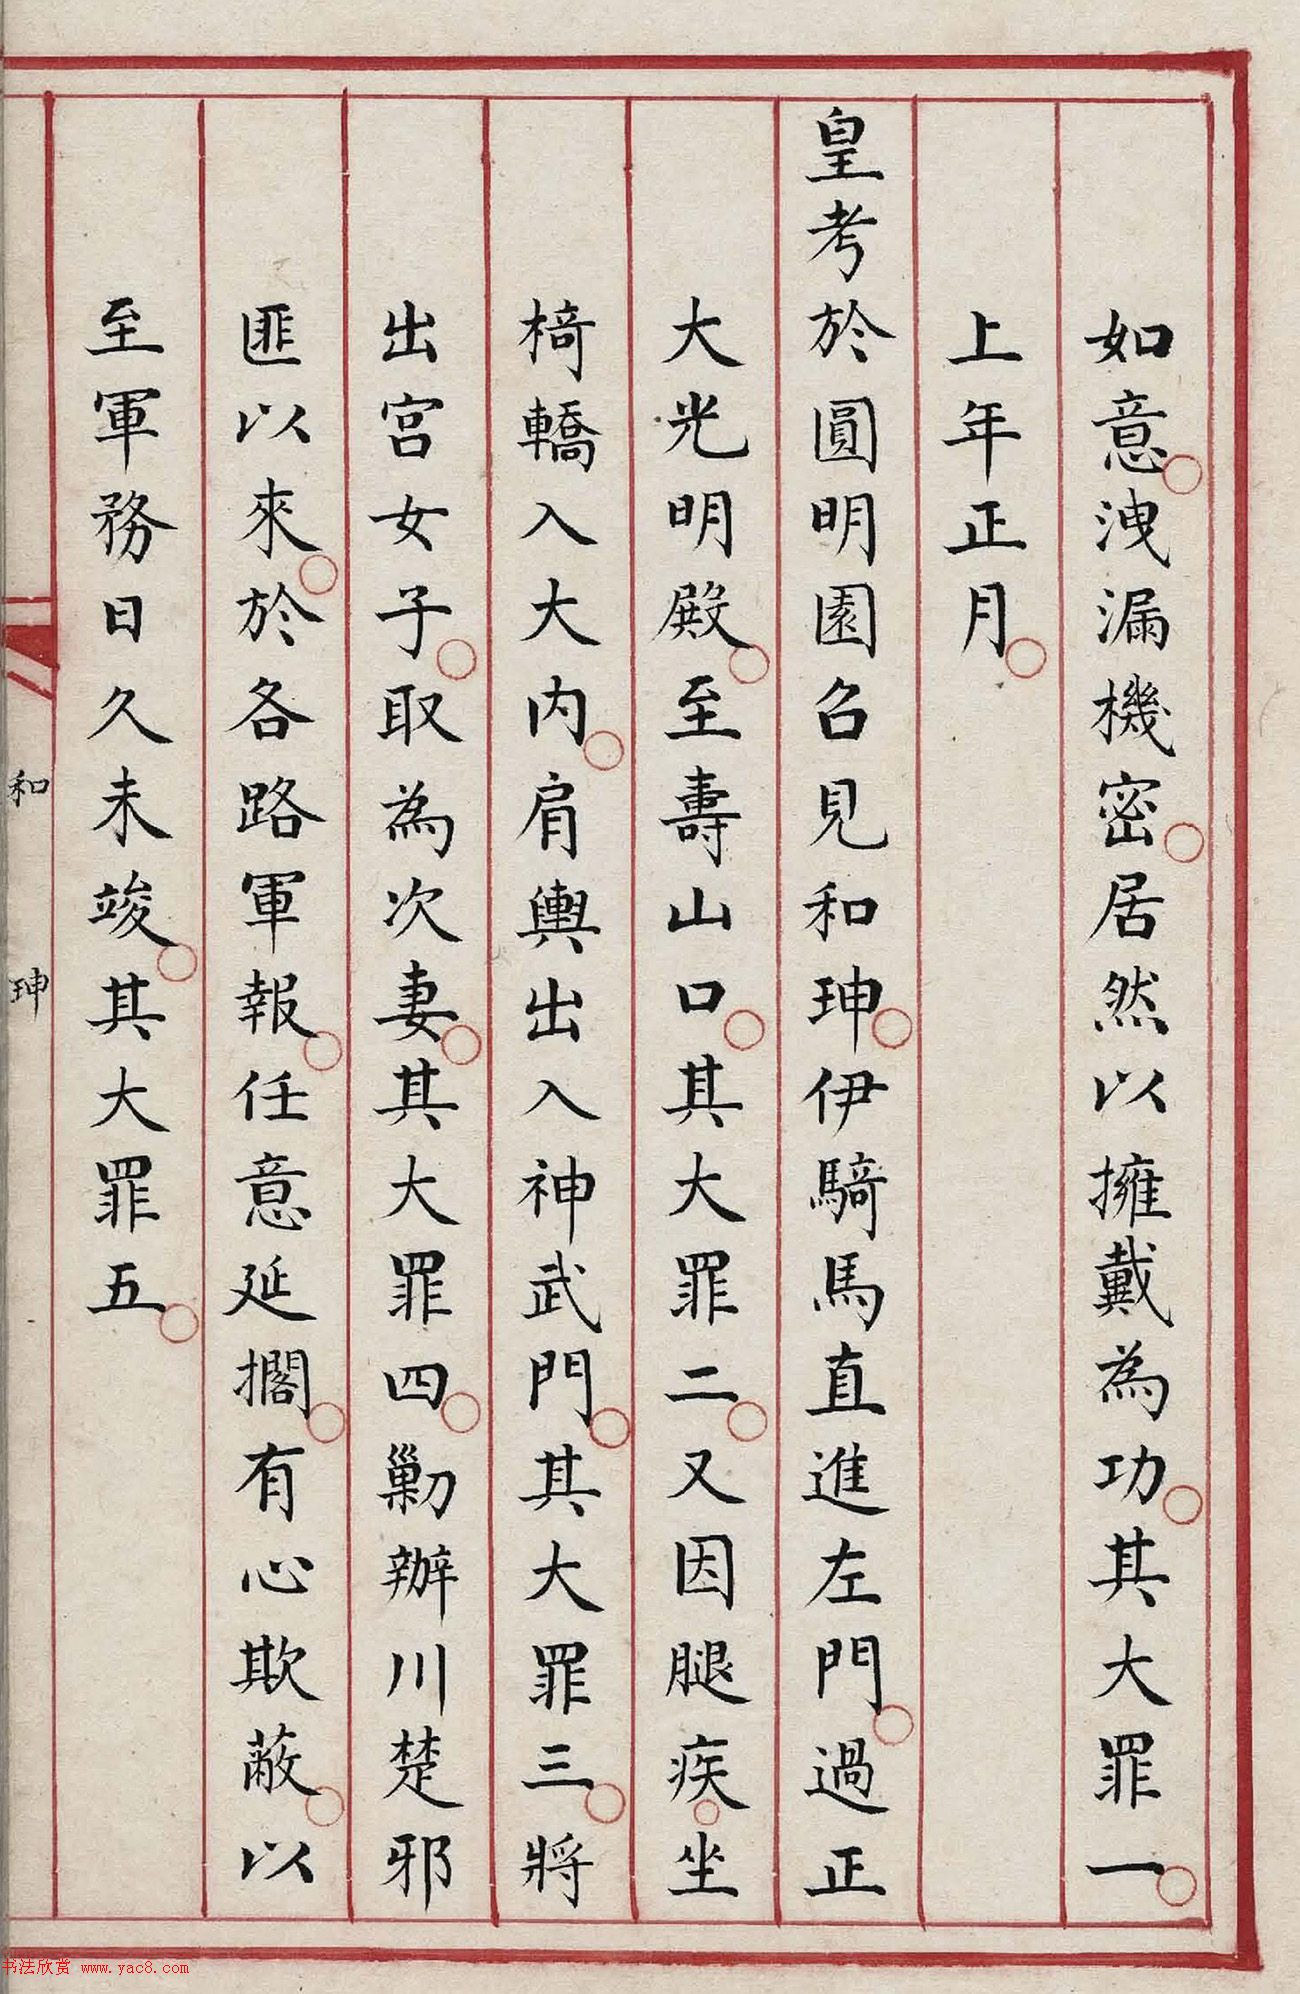 如意洩漏機密居然以擁戴為功其大罪一
上年正月
皇考於圓明園召見和珅伊騎馬直進左門過正
大光明殿至壽山口其大罪二又因腿疾坐
椅轎入大內肩輿出入神武門其大罪三將
出宮女子取為次妻其大罪四勦辦川楚邪
匪以來於各路軍報任意延擱有心欺蔽以
至軍務日久未竣其大罪五
和珅
书法欣赏 www.yac8.com